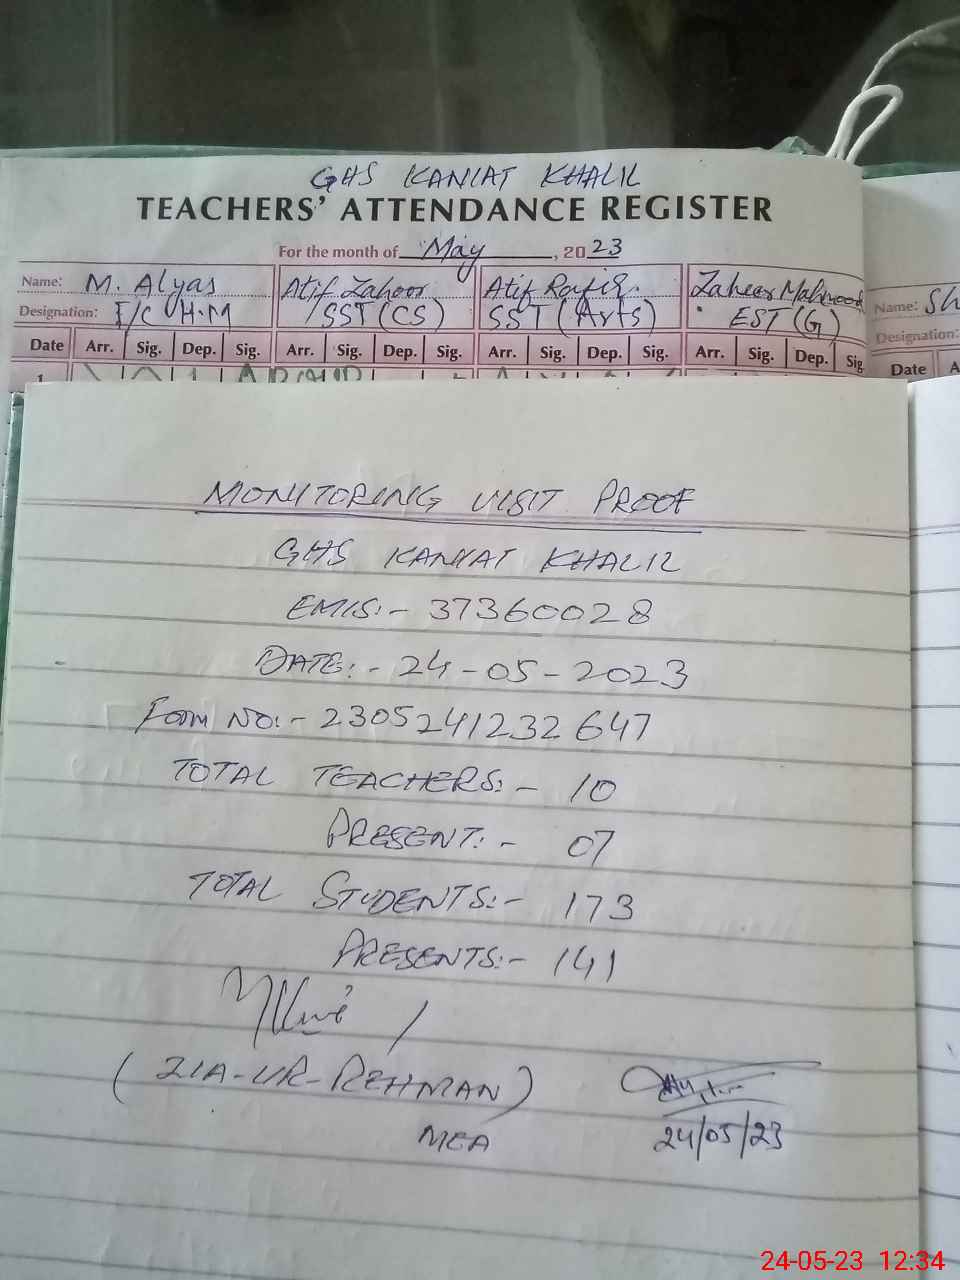 GHS KANIAT KHALIL
TEACHERS' ATTENDANCE REGISTER
For the month of May, 2023
Name: M. Alyas Atif Zahoor Atif Rafiq. Zaheer Mahmood Name: Sh
Designation: I/C H.M SST (CS) SST (Arts) EST (G) Designation:
Date Arr. Sig. Dep. Sig. Arr. Sig. Dep. Sig. Arr. Sig. Dep. Sig. Arr. Sig. Dep. Sig Date A
1
MONITORING VISIT PROOF
GHS KANIAT KHALIL
EMIS:- 37360028
DATE:- 24-05-2023
Form NO:- 2305241232647
TOTAL TEACHERS:- 10
PRESENT:- 07
TOTAL STUDENTS:- 173
PRESENTS:- 141
(ZIA-UR-REHMAN)
MEA
24/05/23
24-05-23 12:34